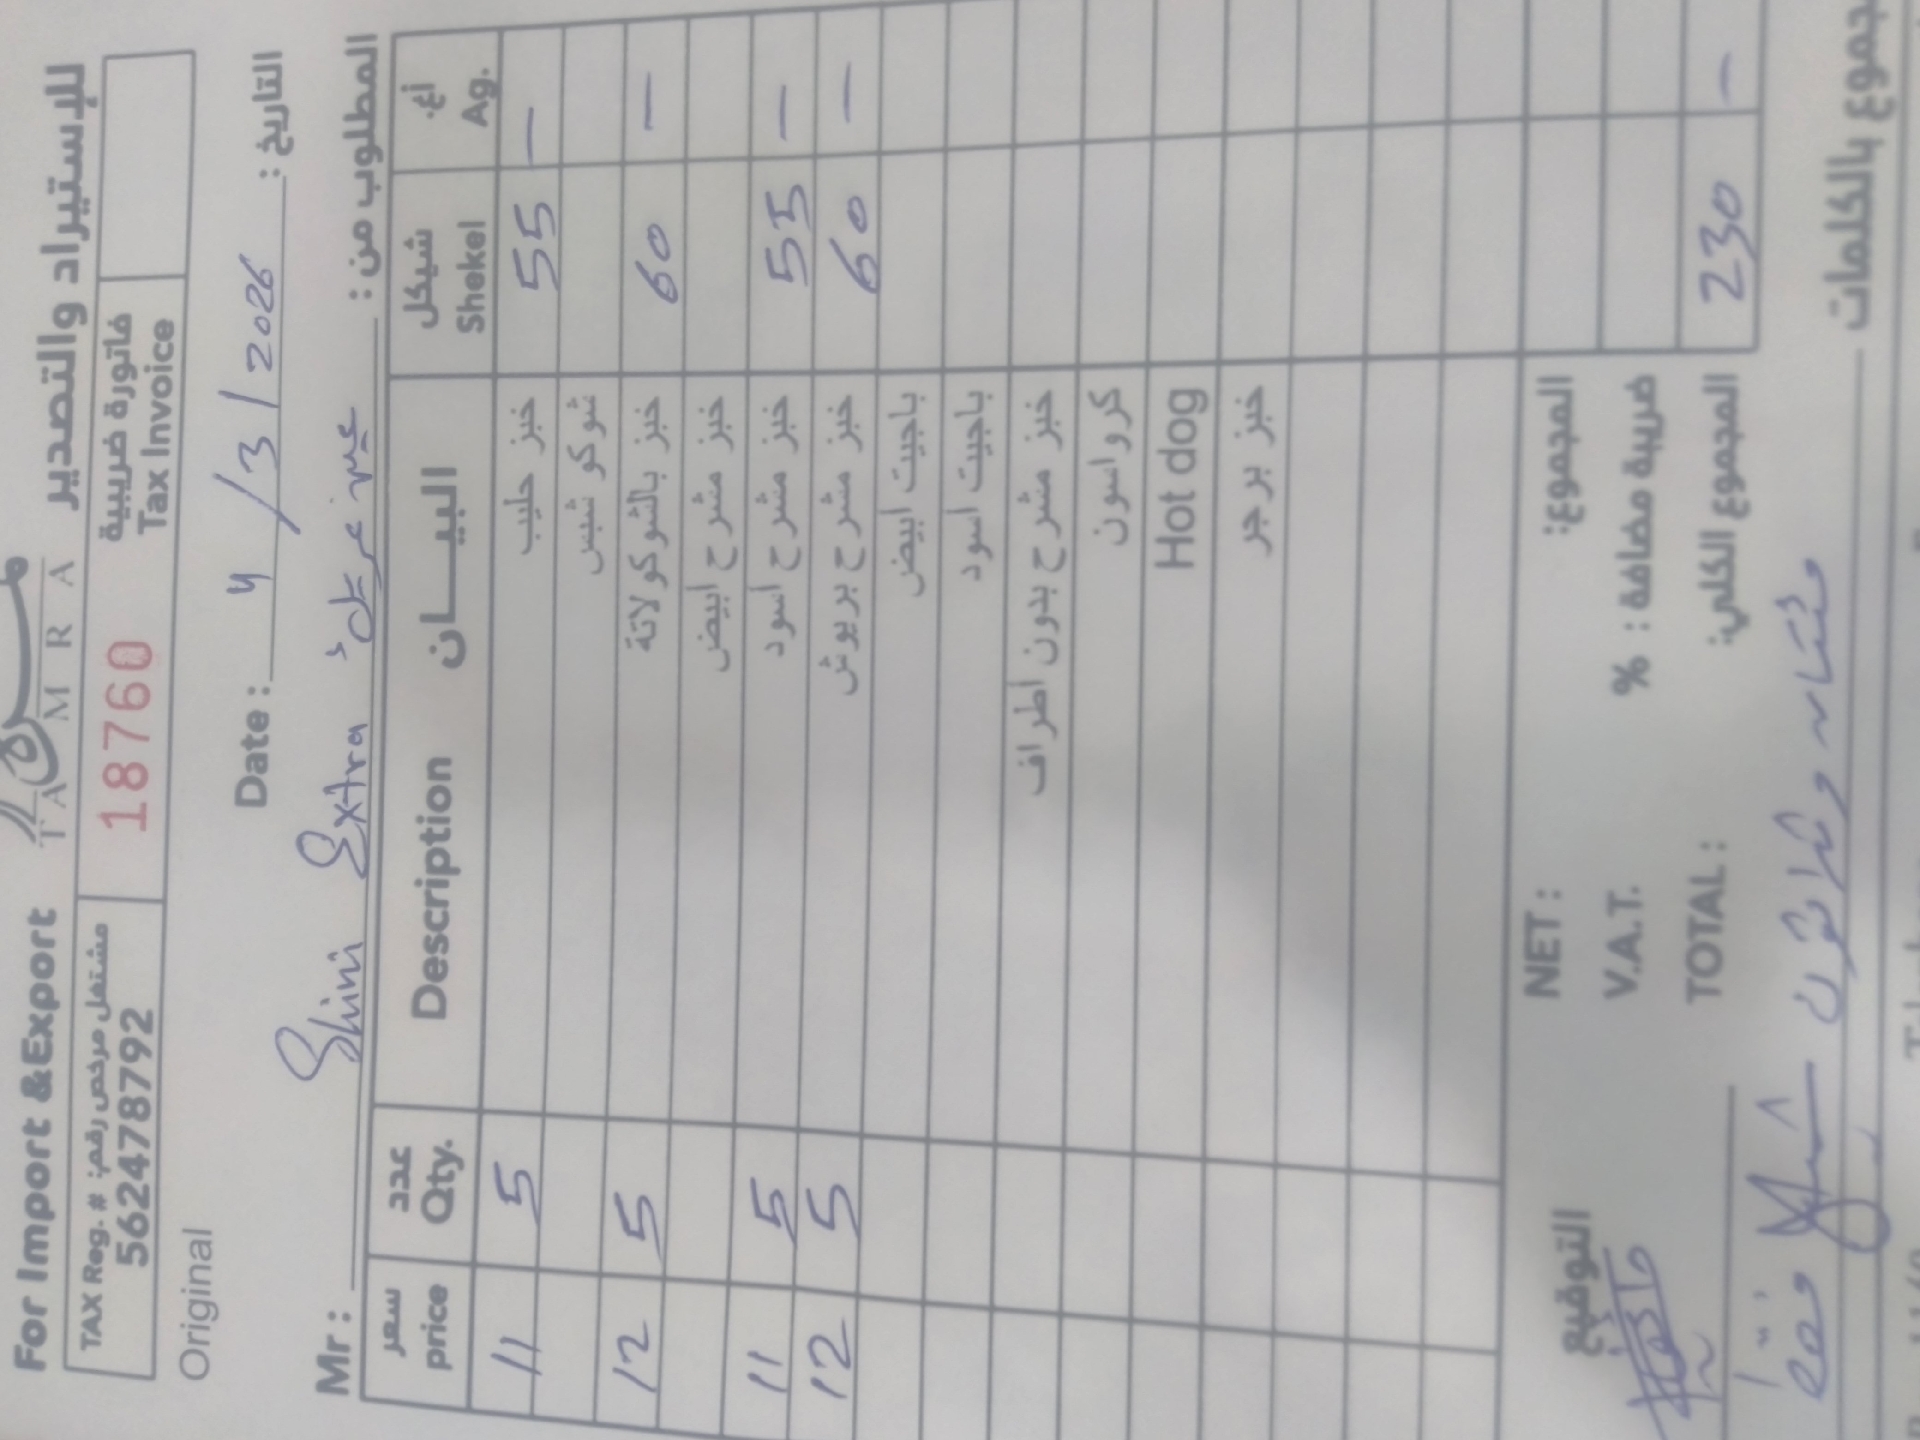 For Import &Export تمرة للإستيراد والتصدير
TAMRA
TAX Reg. # مشتغل مرخص رقم: 562478792
18760
فاتورة ضريبية
Tax Invoice
Original
Date : 4 / 3 / 2026 التاريخ :
Mr : Shini Extra المطلوب من :
سعر price عدد Qty. Description البيـــان شيكل Shekel أغ. Ag.
11 5 خبز حليب 55 —
شوكو شبس
12 5 خبز بالشوكولاتة 60 —
خبز مشرح ابيض
11 5 خبز مشرح اسود 55 —
12 5 خبز مشرح بريوش 60 —
باجيت ابيض
باجيت اسود
خبز مشرح بدون اطراف
كرواسون
Hot dog
خبز برجر
التوقيع NET : المجموع:
V.A.T. % ضريبة مضافة :
TOTAL : المجموع الكلي: 230 —
فقط مئتان وثلاثون شيكل المجموع بالكلمات